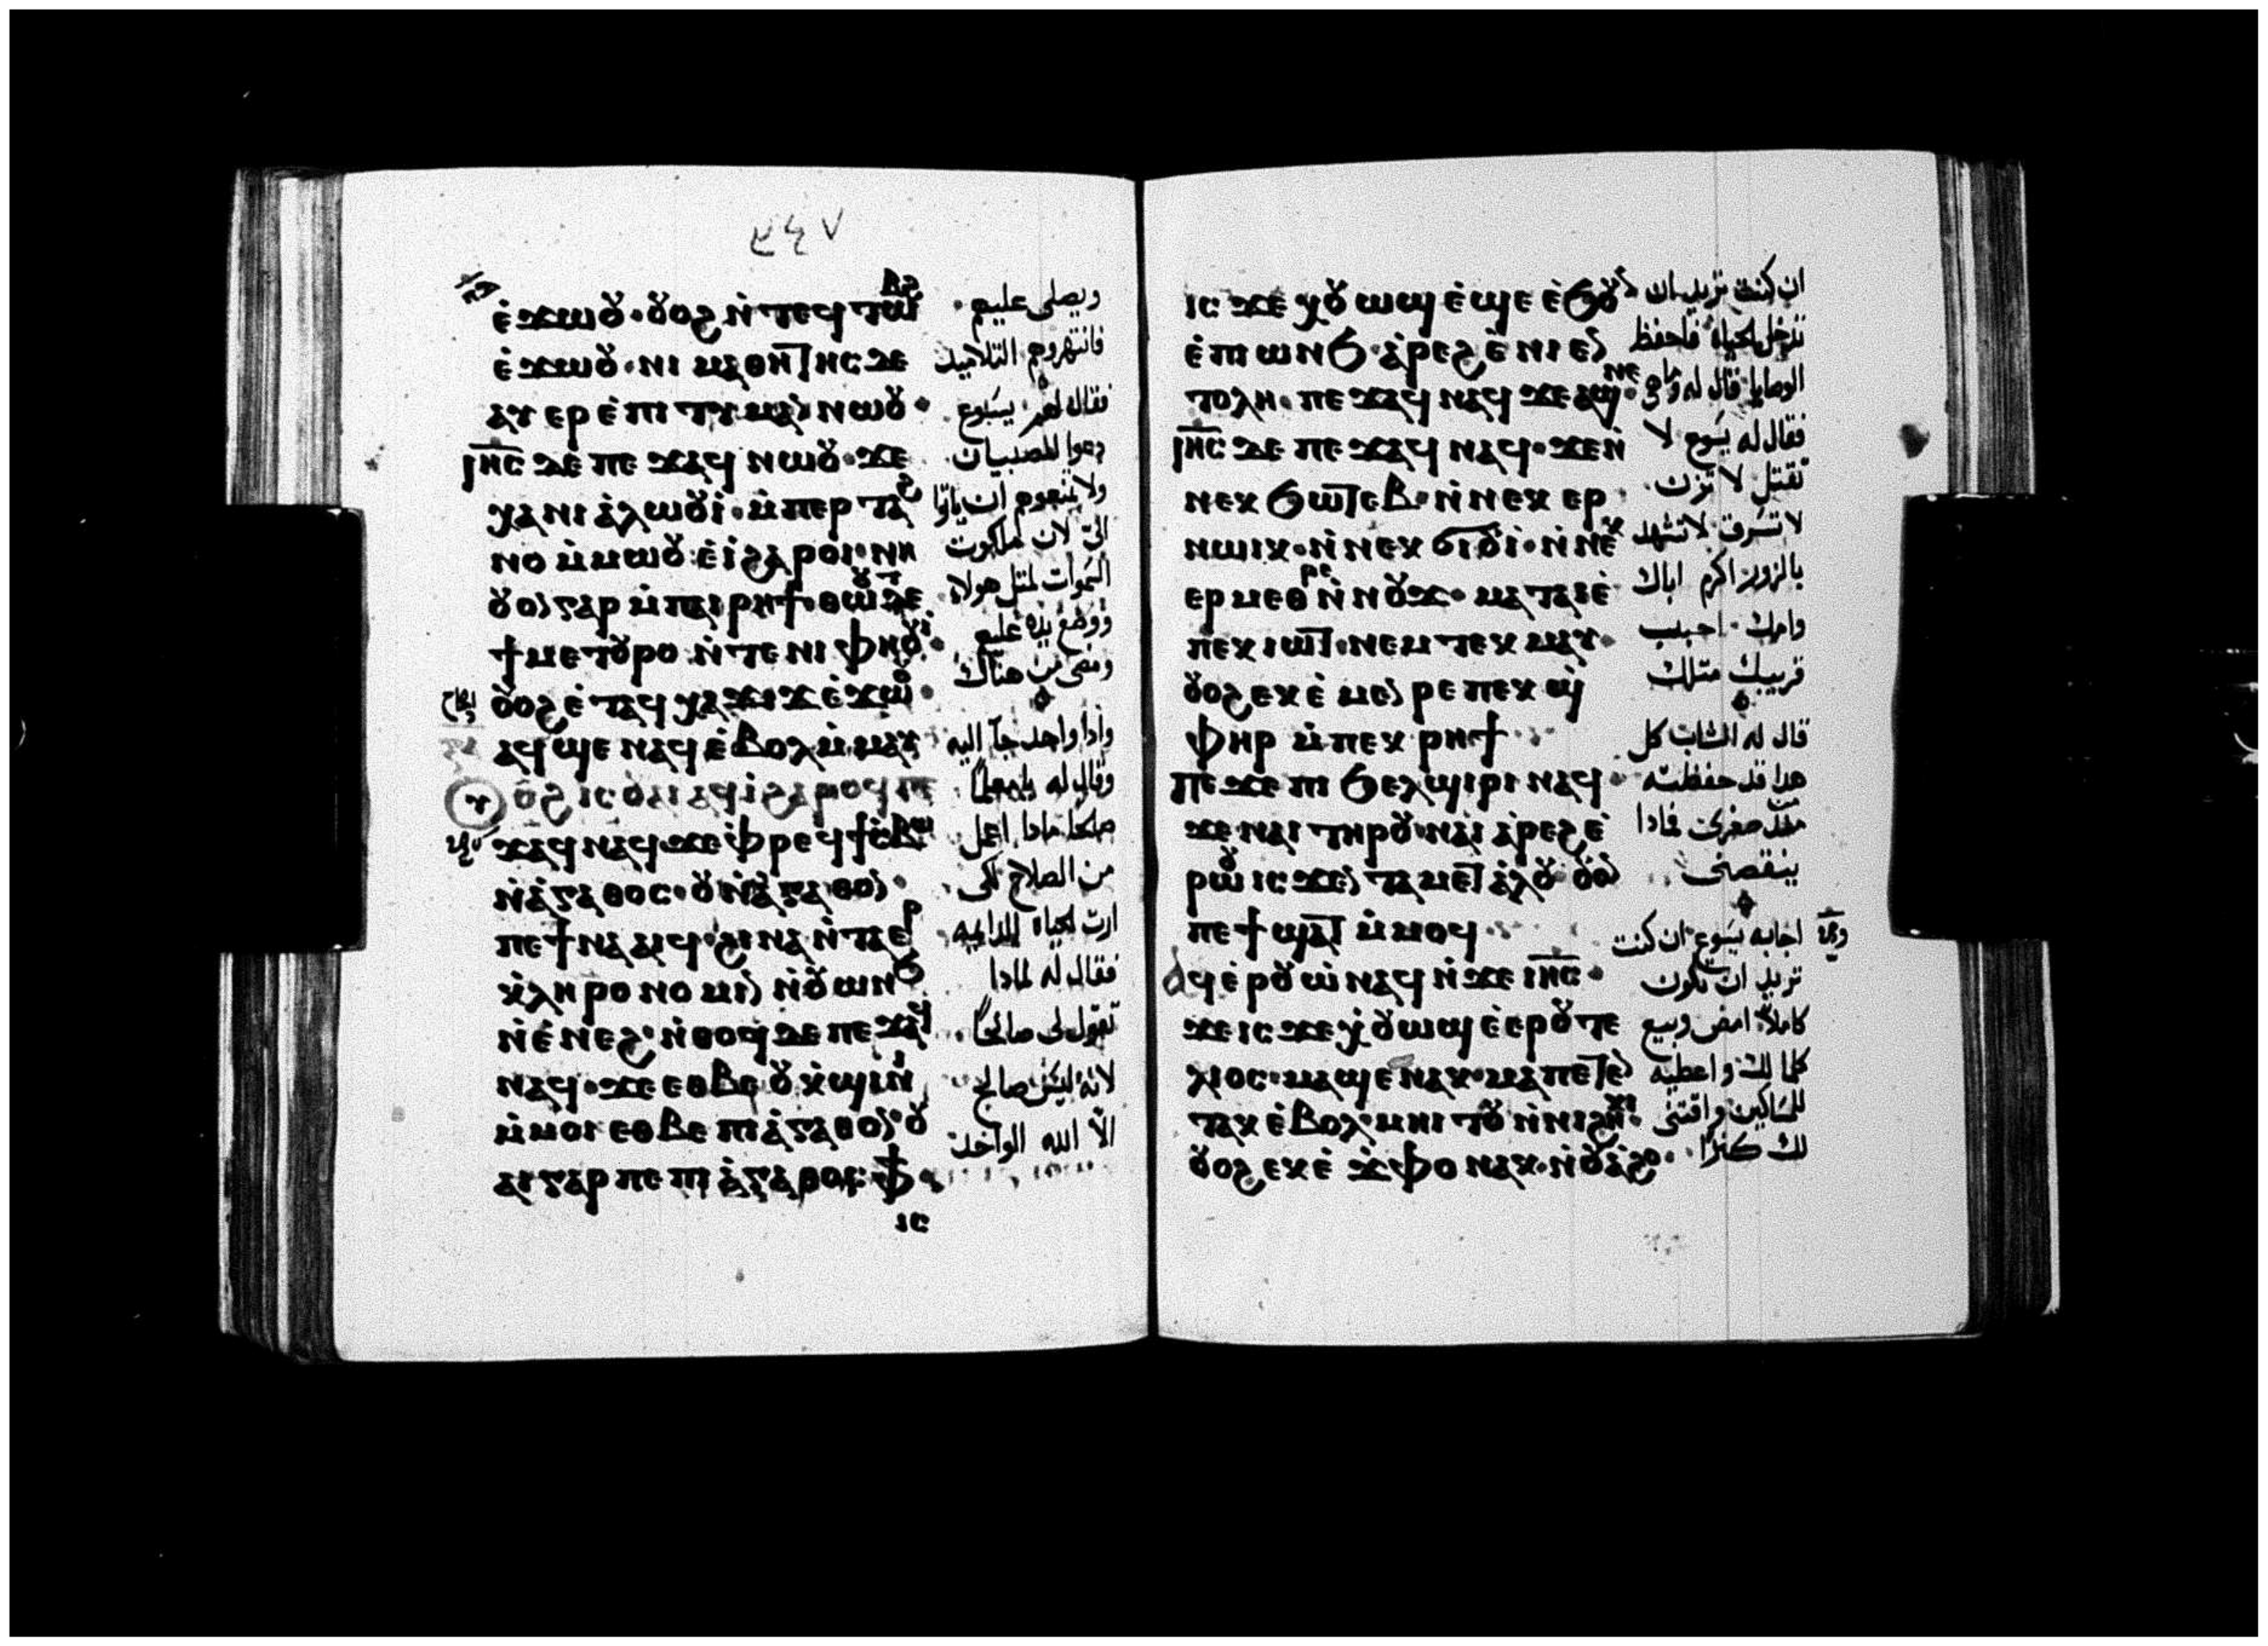 ٢٤٧
ⲉ̀ϫⲱⲟⲩ · ⲟⲩⲟϩ ⲛ̀ⲧⲉϥⲧⲱⲃϩ
ⲉ̀ϫⲱⲟⲩ · ⲛⲓ ⲙⲁⲑⲏⲧⲏⲥ ⲇⲉ
ⲁⲩⲉⲣⲉ̀ⲡⲓⲧⲓⲙⲁⲛ ⲛⲱⲟⲩ ·
ⲓⲏⲥ ⲇⲉ ⲡⲉϫⲁϥ ⲛⲱⲟⲩ · ϫⲉ
ⲭⲁ ⲛⲓ ⲁ̀ⲗⲱⲟⲩⲓ̀ · ⲙ̀ⲡⲉⲣⲧⲁϩ
ⲛⲟ ⲙ̀ⲙⲱⲟⲩ ⲉ̀ⲓ̀ ϩⲁⲣⲟⲓ · ⲛⲏ
ⲟⲩⲟⲛ ⲅⲁⲣ ⲙ̀ⲡⲁⲓⲣⲏϯ · ⲑⲱⲟⲩ ⲧⲉ
ϯⲙⲉⲧⲟⲩⲣⲟ ⲛ̀ⲧⲉ ⲛⲓ ⲫⲏⲟⲩⲓ̀ ·
ⲟⲩⲟϩ ⲉ̀ⲧⲁϥⲭⲁϫⲓϫ ⲉ̀ϫⲱⲟⲩ ·
ⲁϥϣⲉ ⲛⲁϥ ⲉ̀ⲃⲟⲗ ⲙ̀ⲙⲁⲩ
ⲟⲩⲟϩ ⲓⲥ ⲟⲩⲁⲓ ⲁϥⲓ̀ ϩⲁⲣⲟϥ ⲡⲉ
ϫⲁϥ ⲛⲁϥ ϫⲉ ⲫⲣⲉϥϯⲥⲃⲱ
ⲛ̀ⲁ̀ⲅⲁⲑⲟⲥ · ⲟⲩ ⲛ̀ⲁ̀ⲅⲁⲑⲟⲛ ·
ⲡⲉϯⲛⲁⲁⲓϥ · ϩⲓⲛⲁ ⲛ̀ⲧⲁⲉⲣ
ⲕ̀ⲗⲏⲣⲟⲛⲟⲙⲓⲛ ⲛ̀ⲟⲩⲱⲛϧ
ⲛ̀ⲉ̀ⲛⲉϩ · ⲛ̀ⲑⲟϥ ⲇⲉ ⲡⲉϫⲁϥ
ⲛⲁϥ · ϫⲉ ⲉⲑⲃⲉ ⲟⲩ ⲕ̀ϣⲓⲛⲓ
ⲙ̀ⲙⲟⲓ ⲉⲑⲃⲉ ⲡⲓⲁ̀ⲅⲁⲑⲟⲛ ⲟⲩ
ⲁⲓ ⲅⲁⲣ ⲡⲉ ⲡⲓⲁ̀ⲅⲁⲑⲟⲥ ⲫϯ ·
ⲓⲥ
ويصلى عليهم ·
فانتهروهم التلاميد
فقال لهم يسوع
دعوا الصبيان
ولا تمنعوهم ان ياتوا
الىّ لان ملكوت
السموات لمتل هولاء
ووضع يده عليهم
ومضى من هناك
واذا واحد جا اليه
وقال له يا معلماً
صلحا مادا اعمل
من الصلاح لكى
ارت لحياه الدايمه
فقال له لمادا
تقول لى صالحاً
لانه ليس صالح
الاّ الله الواحد
ⲓⲥ ϫⲉ ⲭⲟⲩⲱϣ ⲉ̀ϣⲉ ⲉ̀ϧⲟⲩⲛ
ⲉ̀ⲡⲓⲱⲛϧ · ⲁ̀ⲣⲉϩ ⲉ̀ ⲛⲓⲉⲛ
ⲧⲟⲗⲏ · ⲡⲉϫⲁϥ ⲛⲁϥ ϫⲉ ⲁϣ ⲛⲉ ·
ⲓⲏⲥ ⲇⲉ ⲡⲉϫⲁϥ ⲛⲁϥ · ϫⲉ ⲛ̀
ⲛⲉⲕϧⲱⲧⲉⲃ · ⲛ̀ⲛⲉⲕⲉⲣ
ⲛⲱⲓⲕ · ⲛ̀ⲛⲉⲕϭⲓⲟⲩⲓ̀ · ⲛ̀ⲛⲉⲕ
ⲉⲣⲙⲉⲑⲣⲉ ⲛ̀ⲛⲟⲩϫ · ⲙⲁⲧⲁⲓⲉ̀
ⲡⲉⲕⲓⲱⲧ · ⲛⲉⲙ ⲧⲉⲕⲙⲁⲩ ·
ⲟⲩⲟϩ ⲉⲕⲉ̀ⲙⲉⲛⲣⲉ ⲡⲉⲕϣ̀
ⲫⲏⲣ ⲙ̀ⲡⲉⲕⲣⲏϯ ·
ⲡⲉϫⲉ ⲡⲓ ϧⲉⲗϣⲓⲣⲓ ⲛⲁϥ ·
ϫⲉ ⲛⲁⲓ ⲧⲏⲣⲟⲩ · ⲛⲁⲓ ⲁ̀ⲣⲉϩ ⲉ̀
ⲣⲱⲟⲩ ⲓⲥϫⲉⲛ ⲧⲁⲙⲉⲧⲁ̀ⲗⲟⲩ ⲟⲩⲟⲛ
ⲡⲉϯϣⲁⲧ ⲙ̀ⲙⲟϥ ·
ⲁϥⲉ̀ⲣⲟⲩⲱ̀ ⲛⲁϥ ⲛ̀ϫⲉ ⲓⲏⲥ ·
ϫⲉ ⲓⲥϫⲉ ⲭ̀ⲟⲩⲱϣ ⲉ̀ⲉⲣⲟⲩⲧⲉ
ⲗⲓⲟⲥ · ⲙⲁϣⲉⲛⲁⲕ · ⲙⲁ ⲡⲉⲧⲉⲛ
ⲧⲁⲕ ⲉ̀ⲃⲟⲗ · ⲙⲏⲓⲧⲟⲩ ⲛ̀ⲛⲓϩⲏⲕⲓ
ⲟⲩⲟϩ ⲉⲕⲉ̀ ϫ̀ⲫⲟ ⲛⲁⲕ · ⲛ̀ⲟⲩⲁ̀ϩⲟ ·
ان كنت تريد ان
تدخل لحياة فاحفظ
الوصايا قال له وما هى
فقال له يسوع لا
تقتل لا تزن ·
لا تسرق لا تشهد
بالزور اكرم اباك
وامك · احبب
قريبك متلك
قال له الشاب كل
هدا قد حفظته
صغرى فمادا
ينقصنى
اجابه يسوع ان كنت
تريد ان تكون
كاملاً امض وبيع
كلما لك واعطيه
للمساكين واقتنى
لك كنزا